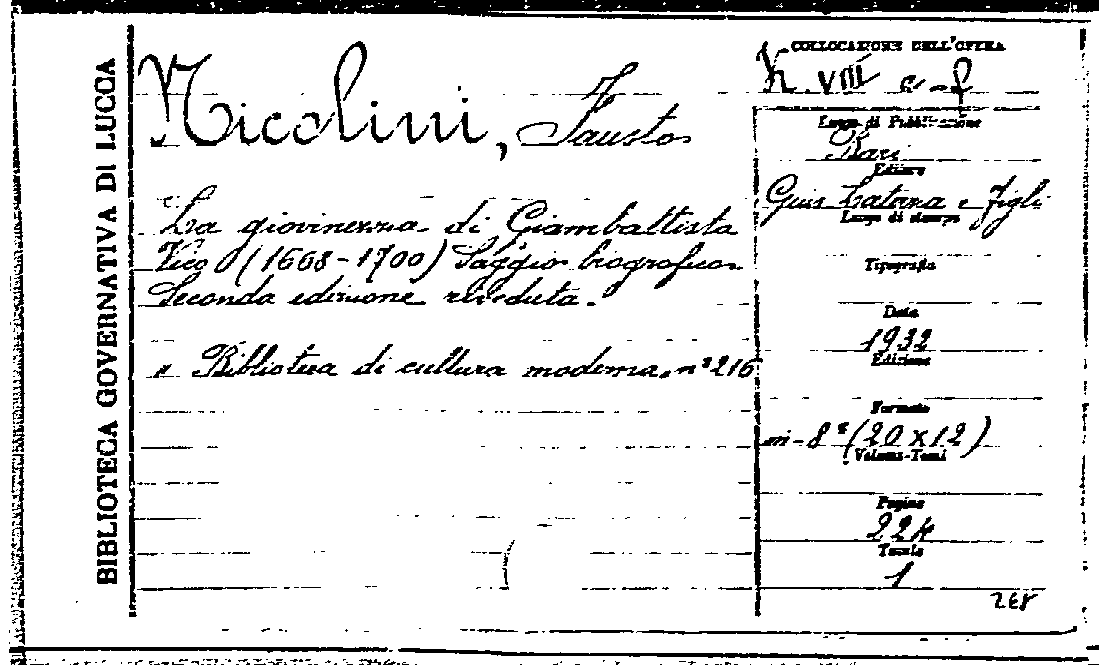 BIBLIOTECA GOVERNATIVA DI LUCCA
Nicolini, Fausto
La giovinezza di Giambattista
Vico (1668-1700) Saggio biografico
Seconda edizione riveduta.
" Biblioteca di cultura moderna, n° 216
COLLOCAZIONE DELL'OPERA
VIII
Luogo di Pubblicazione
Bari
Editore
Gius. Laterza e figli
Luogo di stampa
Tipografia
Data
1932
Edizione
Formato
in-8° (20 x 12)
Volumi-Tomi
Pagine
224
Tavole
1